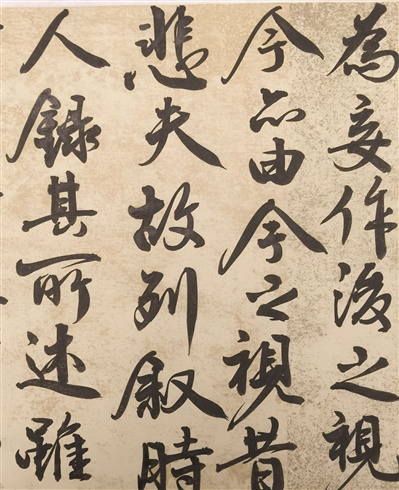 為妄作後之視
今亦由今之視昔
悲夫故列叙時
人録其所述雖